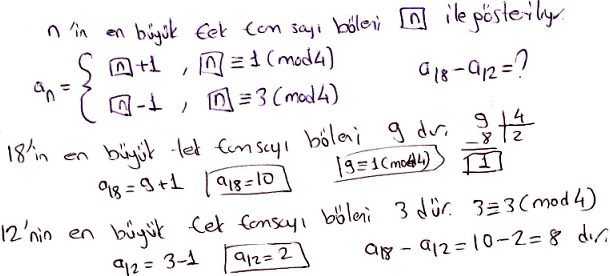 n'in en büyük tek tam sayı böleni [n] ile gösteriliyor.
a_n = { [n]+1 , [n] ≡ 1 (mod4)
[n]-1 , [n] ≡ 3 (mod4)
a_18 - a_12 = ?
18'in en büyük tek tam sayı böleni 9 dır.
9 | 4
-8 | 2
1
a_18 = 9+1 a_18 = 10 9 ≡ 1 (mod4)
12'nin en büyük tek tam sayı böleni 3 dür. 3 ≡ 3 (mod4)
a_12 = 3-1 a_12 = 2 a_18 - a_12 = 10-2 = 8 dir.